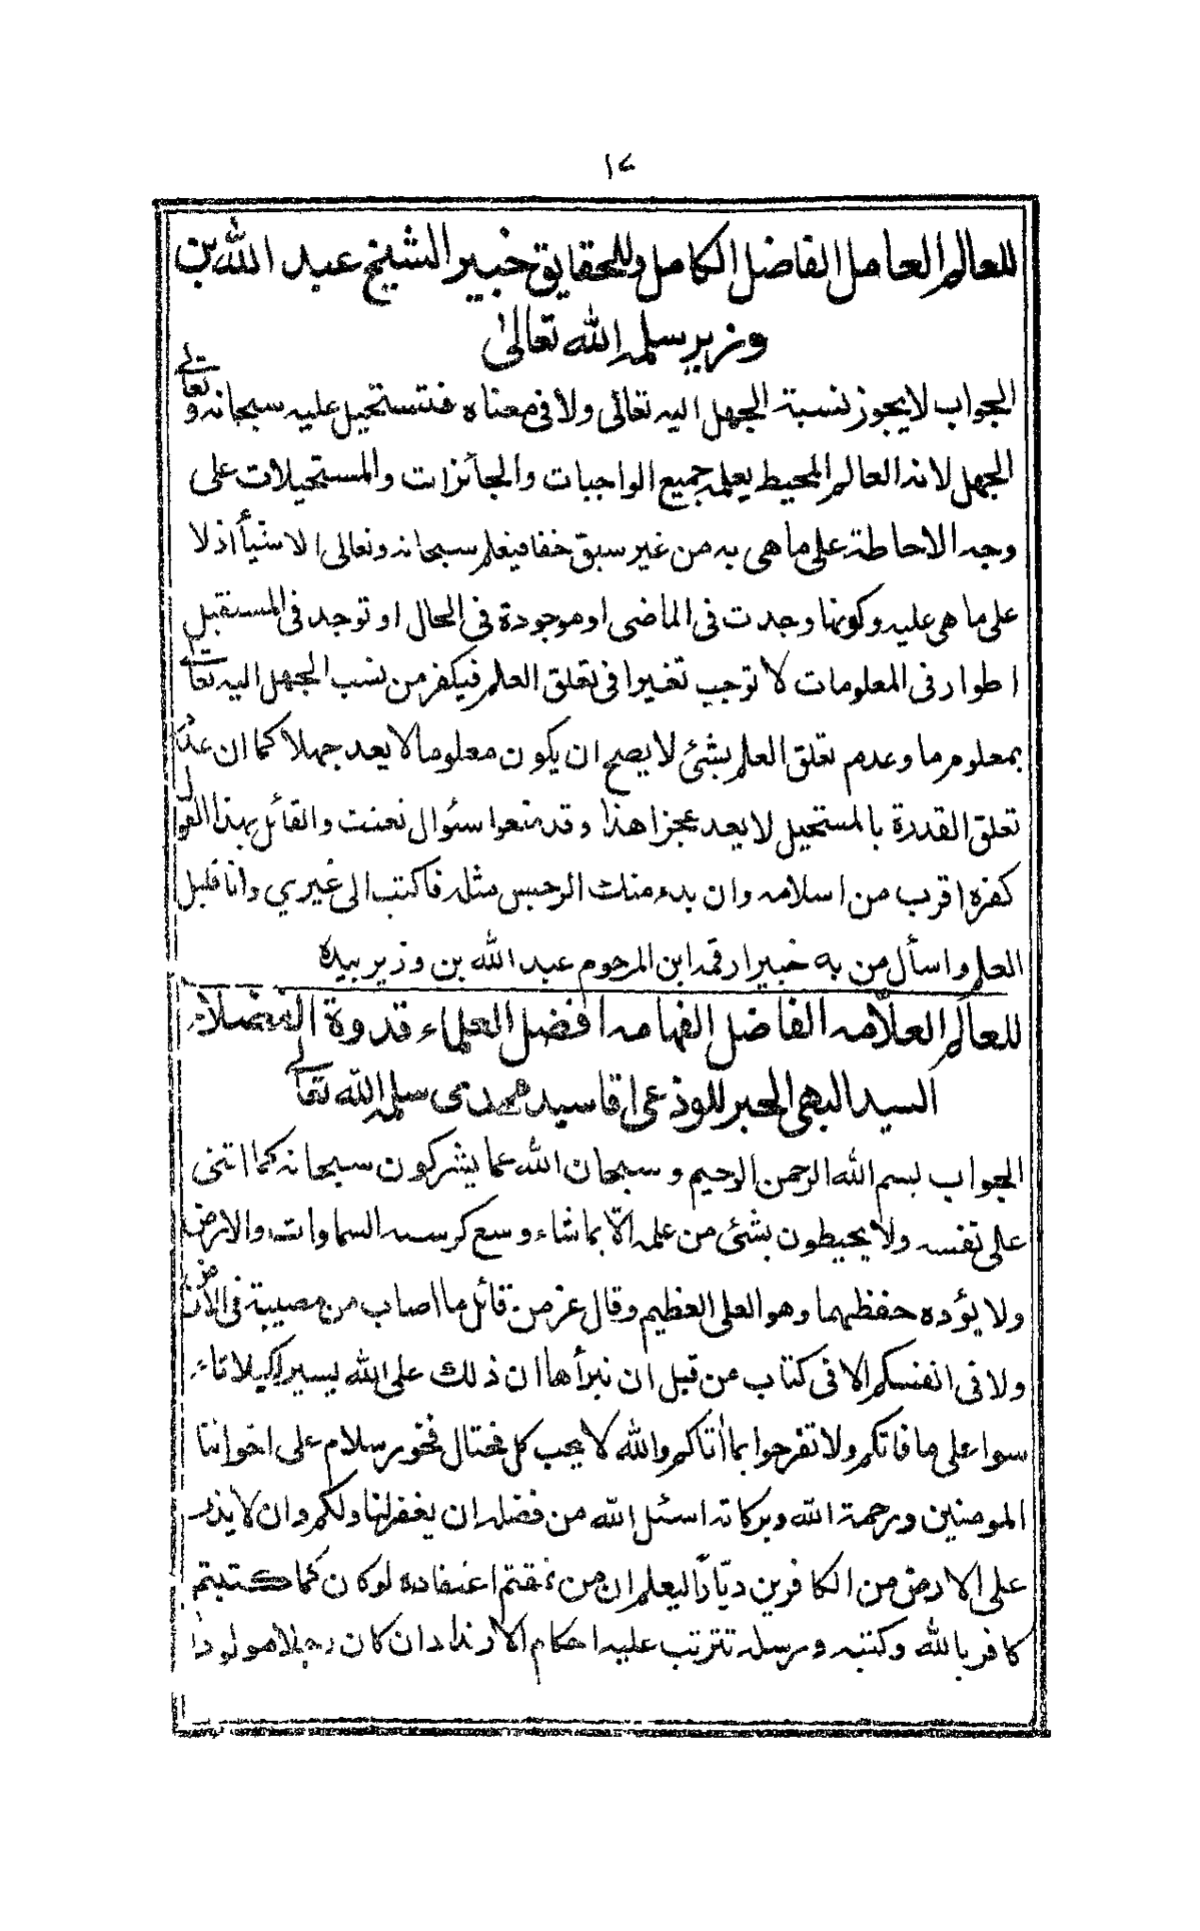 ١٧
للعالم العامل الفاضل الكامل وللحقايق خبير الشيخ عبد الله بن
وزير سلمه الله تعالى
الجواب لا يجوز نسبة الجهل اليه تعالى ولا فى معناه فتستحيل عليه سبحانه وتعالى
الجهل لانه العالم المحيط بعلمه جميع الواجبات والجائزات والمستحيلات على
وجه الاحاطة على ما هى به من غير سبق خفا فيعلم سبحانه وتعالى الاشياء اذ لا
على ما هى عليه وكونها وجدت فى الماضى او موجودة فى الحال او توجد فى المستقبل
اطوار فى المعلومات لا توجب تغيرا فى تعلق العلم فيكفر من نسب الجهل اليه تعالى
بمعلوم ما وعدم تعلق العلم بشئ لا يصح ان يكون معلوما لا يعد جهلا كما ان عدم
تعلق القدرة بالمستحيل لا يعد عجزا هذا وقد منعوا سئوال تعنت والقائل بهذا القول
كفره اقرب من اسلامه وان بدء منك مثله فاكتب الى غيري وانا قليل
العلم واسأل من به خبيرا رقمه ابن المرحوم عبد الله بن وزير بيده
للعالم العلّامه الفاضل الفهامه افضل العلماء قدوة الفضلاء
السيد البهى الحبر اللوذعى اقا سيد مهدى سلمه الله تعالى
الجواب بسم الله الرحمن الرحيم وسبحان الله عما يشركون سبحانه كما اثنى
على نفسه ولا يحيطون بشئ من علمه الّا بما شاء وسع كرسيه السماوات والارض
ولا يؤده حفظهما وهو العلى العظيم وقال عز من قائل ما اصاب من مصيبة فى الارض
ولا فى انفسكم الا فى كتاب من قبل ان نبرأها ان ذلك على الله يسير لكيلا تاء
سوا على ما فاتكم ولا تفرحوا بما اتاكم والله لا يحب كل مختال فخور سلام على اخواننا
المومنين ورحمة الله وبركاته اسئل الله من فضله ان يغفر لنا ولكم وان لا يذر
على الارض من الكافرين ديّارًا ليعلم ان من اعتقاده لو كان كما كتبتم
كافر بالله وكتبه ورسله تترتب عليه احكام الارتداد ان كان رجلا مولودا